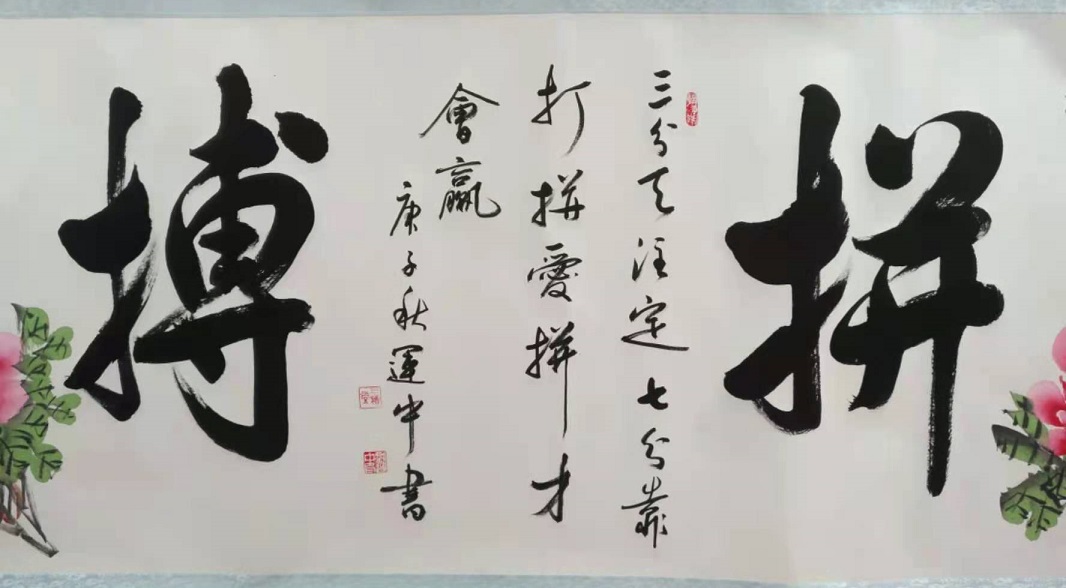 拼
三分天注定七分靠
打拼愛拼才
會贏
庚子秋運中書
搏